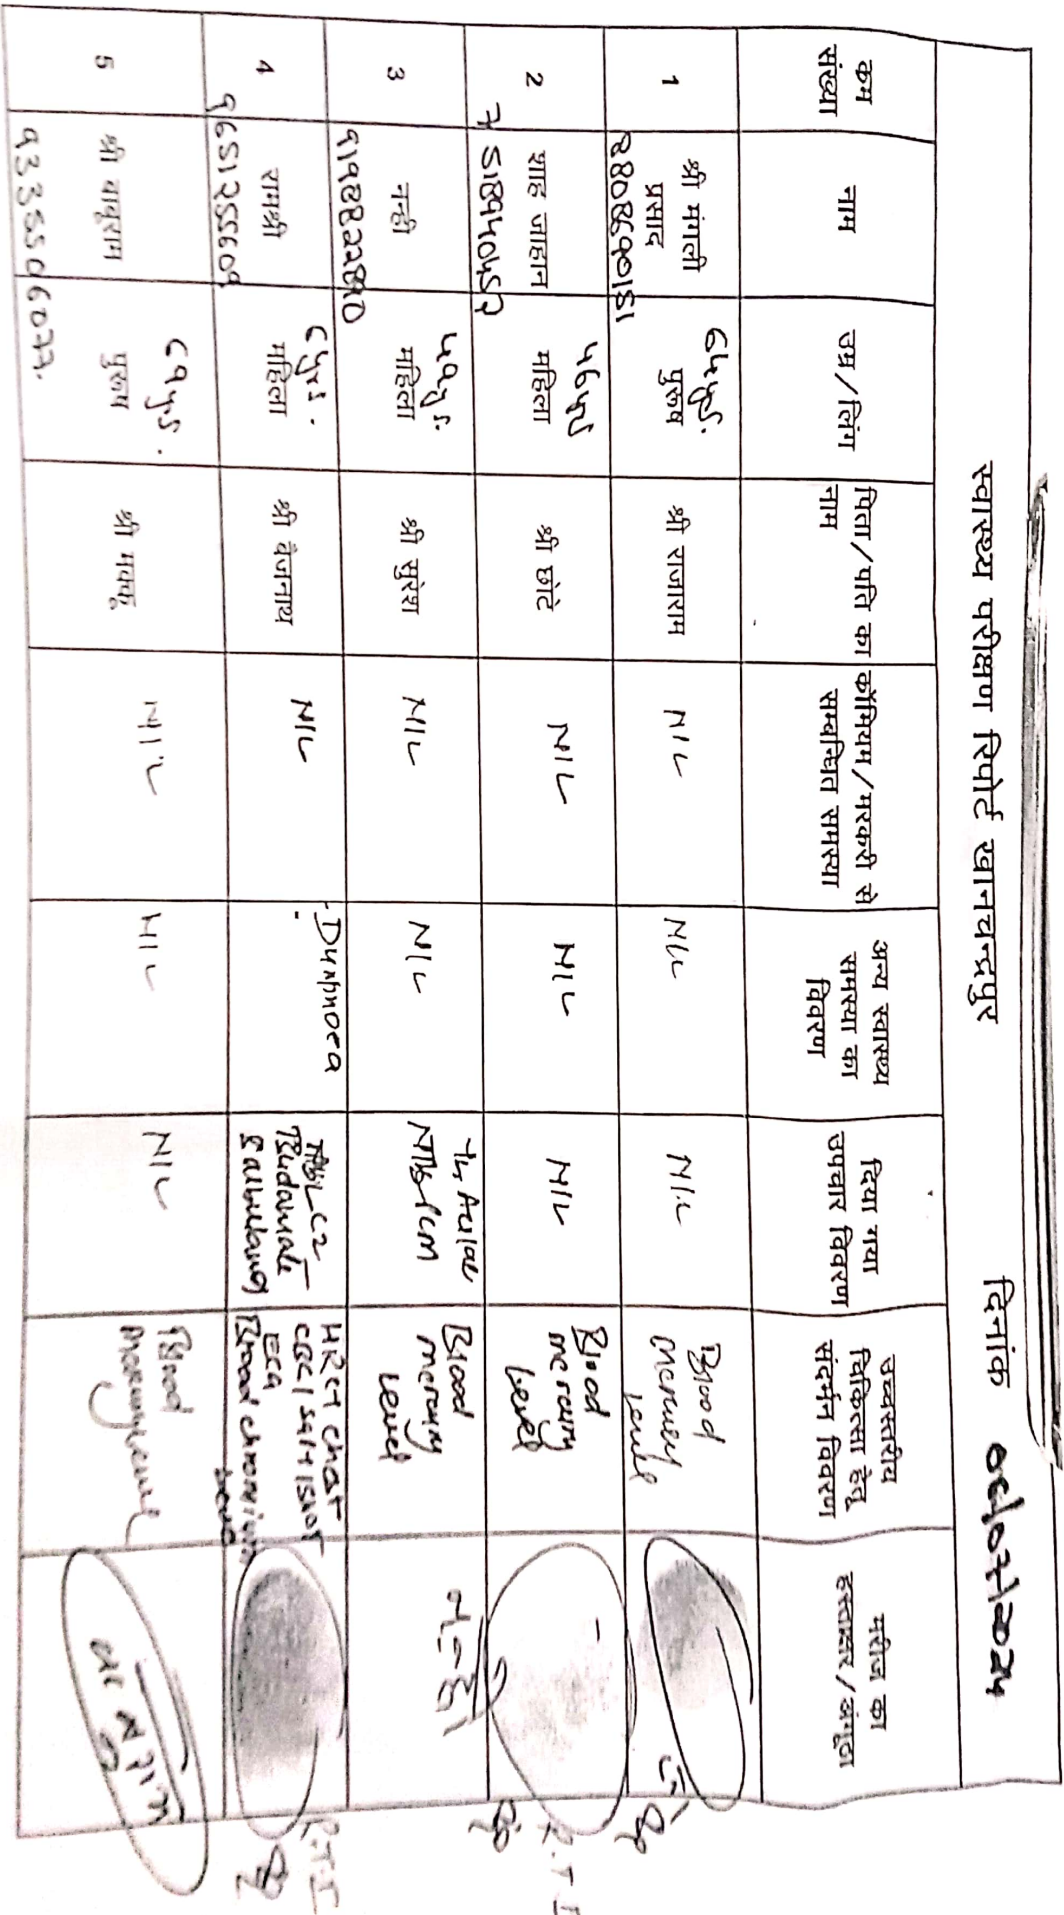 स्वास्थ्य परीक्षण रिपोर्ट खानचन्द्रपुर
दिनांक 09/07/2024
कम
संख्या
नाम
उम्र/लिंग
पिता/पति का
नाम
कोमियम/मरकरी से
सम्बन्धित समस्या
अन्य स्वास्थ्य
समस्या का
विवरण
दिया गया
उपचार विवरण
उच्चस्तरीय
चिकित्सा हेतु
संदर्भन विवरण
मरीज का
हस्ताक्षर/अंगूठा
1
श्री मंगली
प्रसाद
8808690151
64yrs.
पुरूष
श्री राजाराम
NIL
NIL
NIL
Blood
mercury
level
2
शाह जाहान
7518940457
46yrs
महिला
श्री छोटे
NIL
NIL
NIL
Blood
mercury
level
R.T.I
3
नन्ही
9198822890
49yr.
महिला
श्री सुरेश
NIL
NIL
PCM
Blood
mercury
level
नन्ही
4
रामश्री
9651255609
महिला
श्री वैजनाथ
NIL
HRCT chest
ECG
Blood chromium
level
R.T.I
5
श्री बाबूराम
9335506077.
69yrs.
पुरूष
श्री मक्कू
NIL
NIL
NIL
Blood
बाबूराम